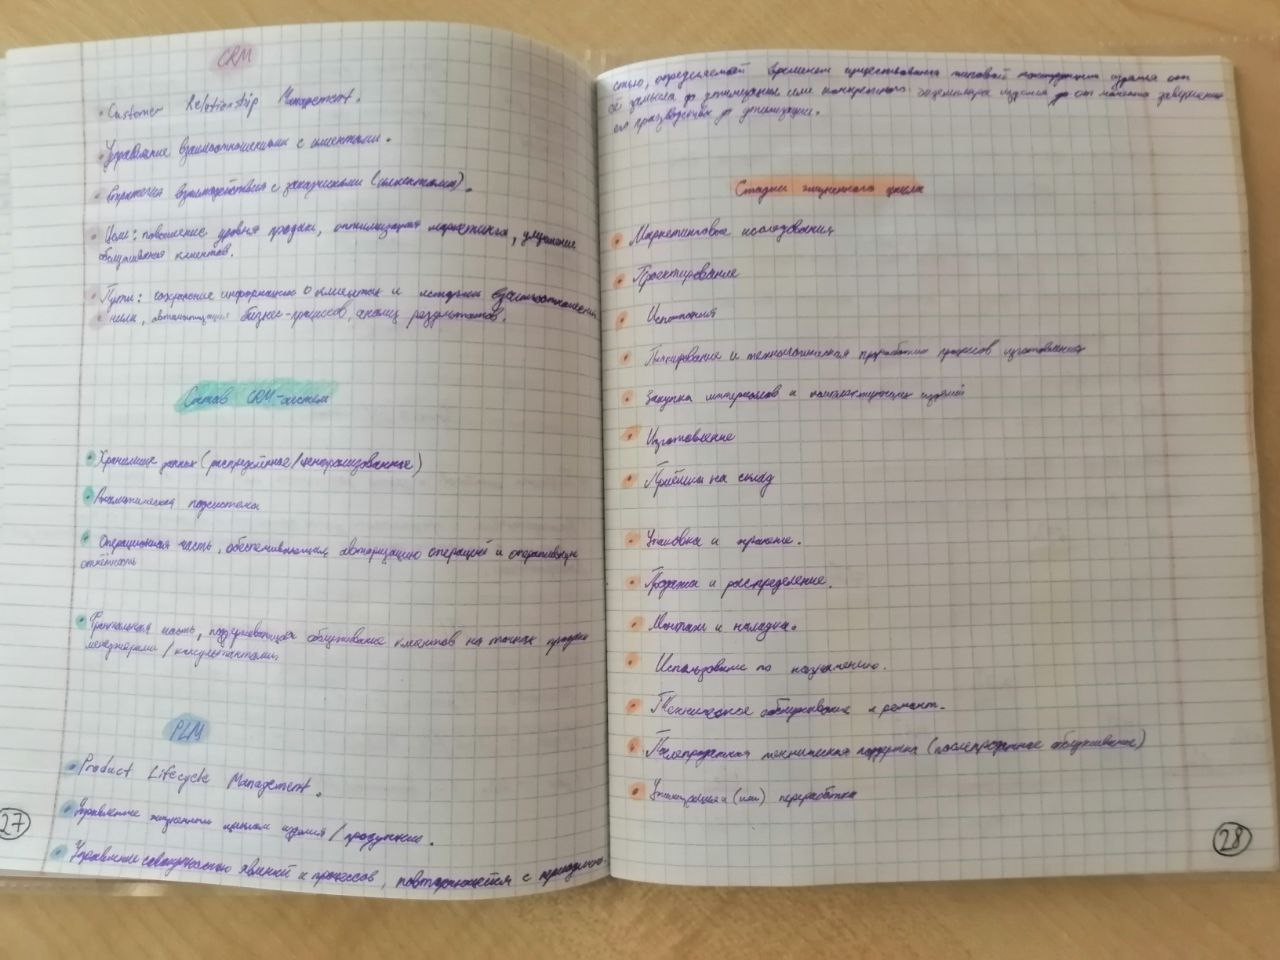 CRM
Customer Relationship Management.
Управление взаимоотношениями с клиентами.
Стратегия взаимодействия с заказчиками (клиентами).
Цели: повышение уровня продаж, оптимизация маркетинга, улучшение
обслуживания клиентов.
Пути: сохранение информации о клиентах и истории взаимоотношений
с ними, автоматизация бизнес-процессов, анализ результатов.
Состав CRM-систем
Хранилище данных (распределённое/централизованное)
Аналитическая подсистема
Операционная часть, обеспечивающая авторизацию операций и оперативную
отчётность
Фронтальная часть, поддерживающая обслуживание клиентов на точках продаж
менеджерами / консультантами
PLM
Product Lifecycle Management.
Управление жизненным циклом изделия / продукции.
Управление совокупностью явлений и процессов, повторяющейся с периодично-
27
стью, определяемой временем существования типовой конструкции изделия от
её замысла до утилизации или конкретного экземпляра изделия от момента завершения
его производства до утилизации.
Стадии жизненного цикла
Маркетинговые исследования
Проектирование
Испытания
Планирование и технологическая проработка процессов изготовления
Закупка материалов и комплектующих изделий
Изготовление
Приёмка на склад
Упаковка и хранение.
Продажа и распределение.
Монтаж и наладка.
Использование по назначению.
Техническое обслуживание и ремонт.
Послепродажная техническая поддержка (послепродажное обслуживание)
Утилизация и (или) переработка
28